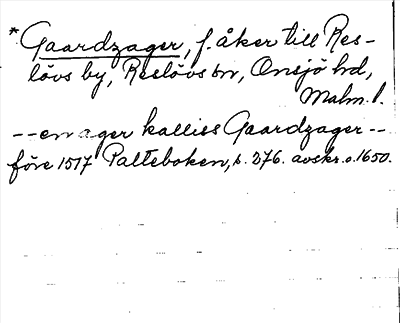 * Gaardzager, f. åker till Res-
lövs by, Reslövs sn, Onsjö hd,
Malm. l.
-- en ager kalliss Gaardzager --
före 1517 Palteboken, s. 276. avskr. o. 1650.